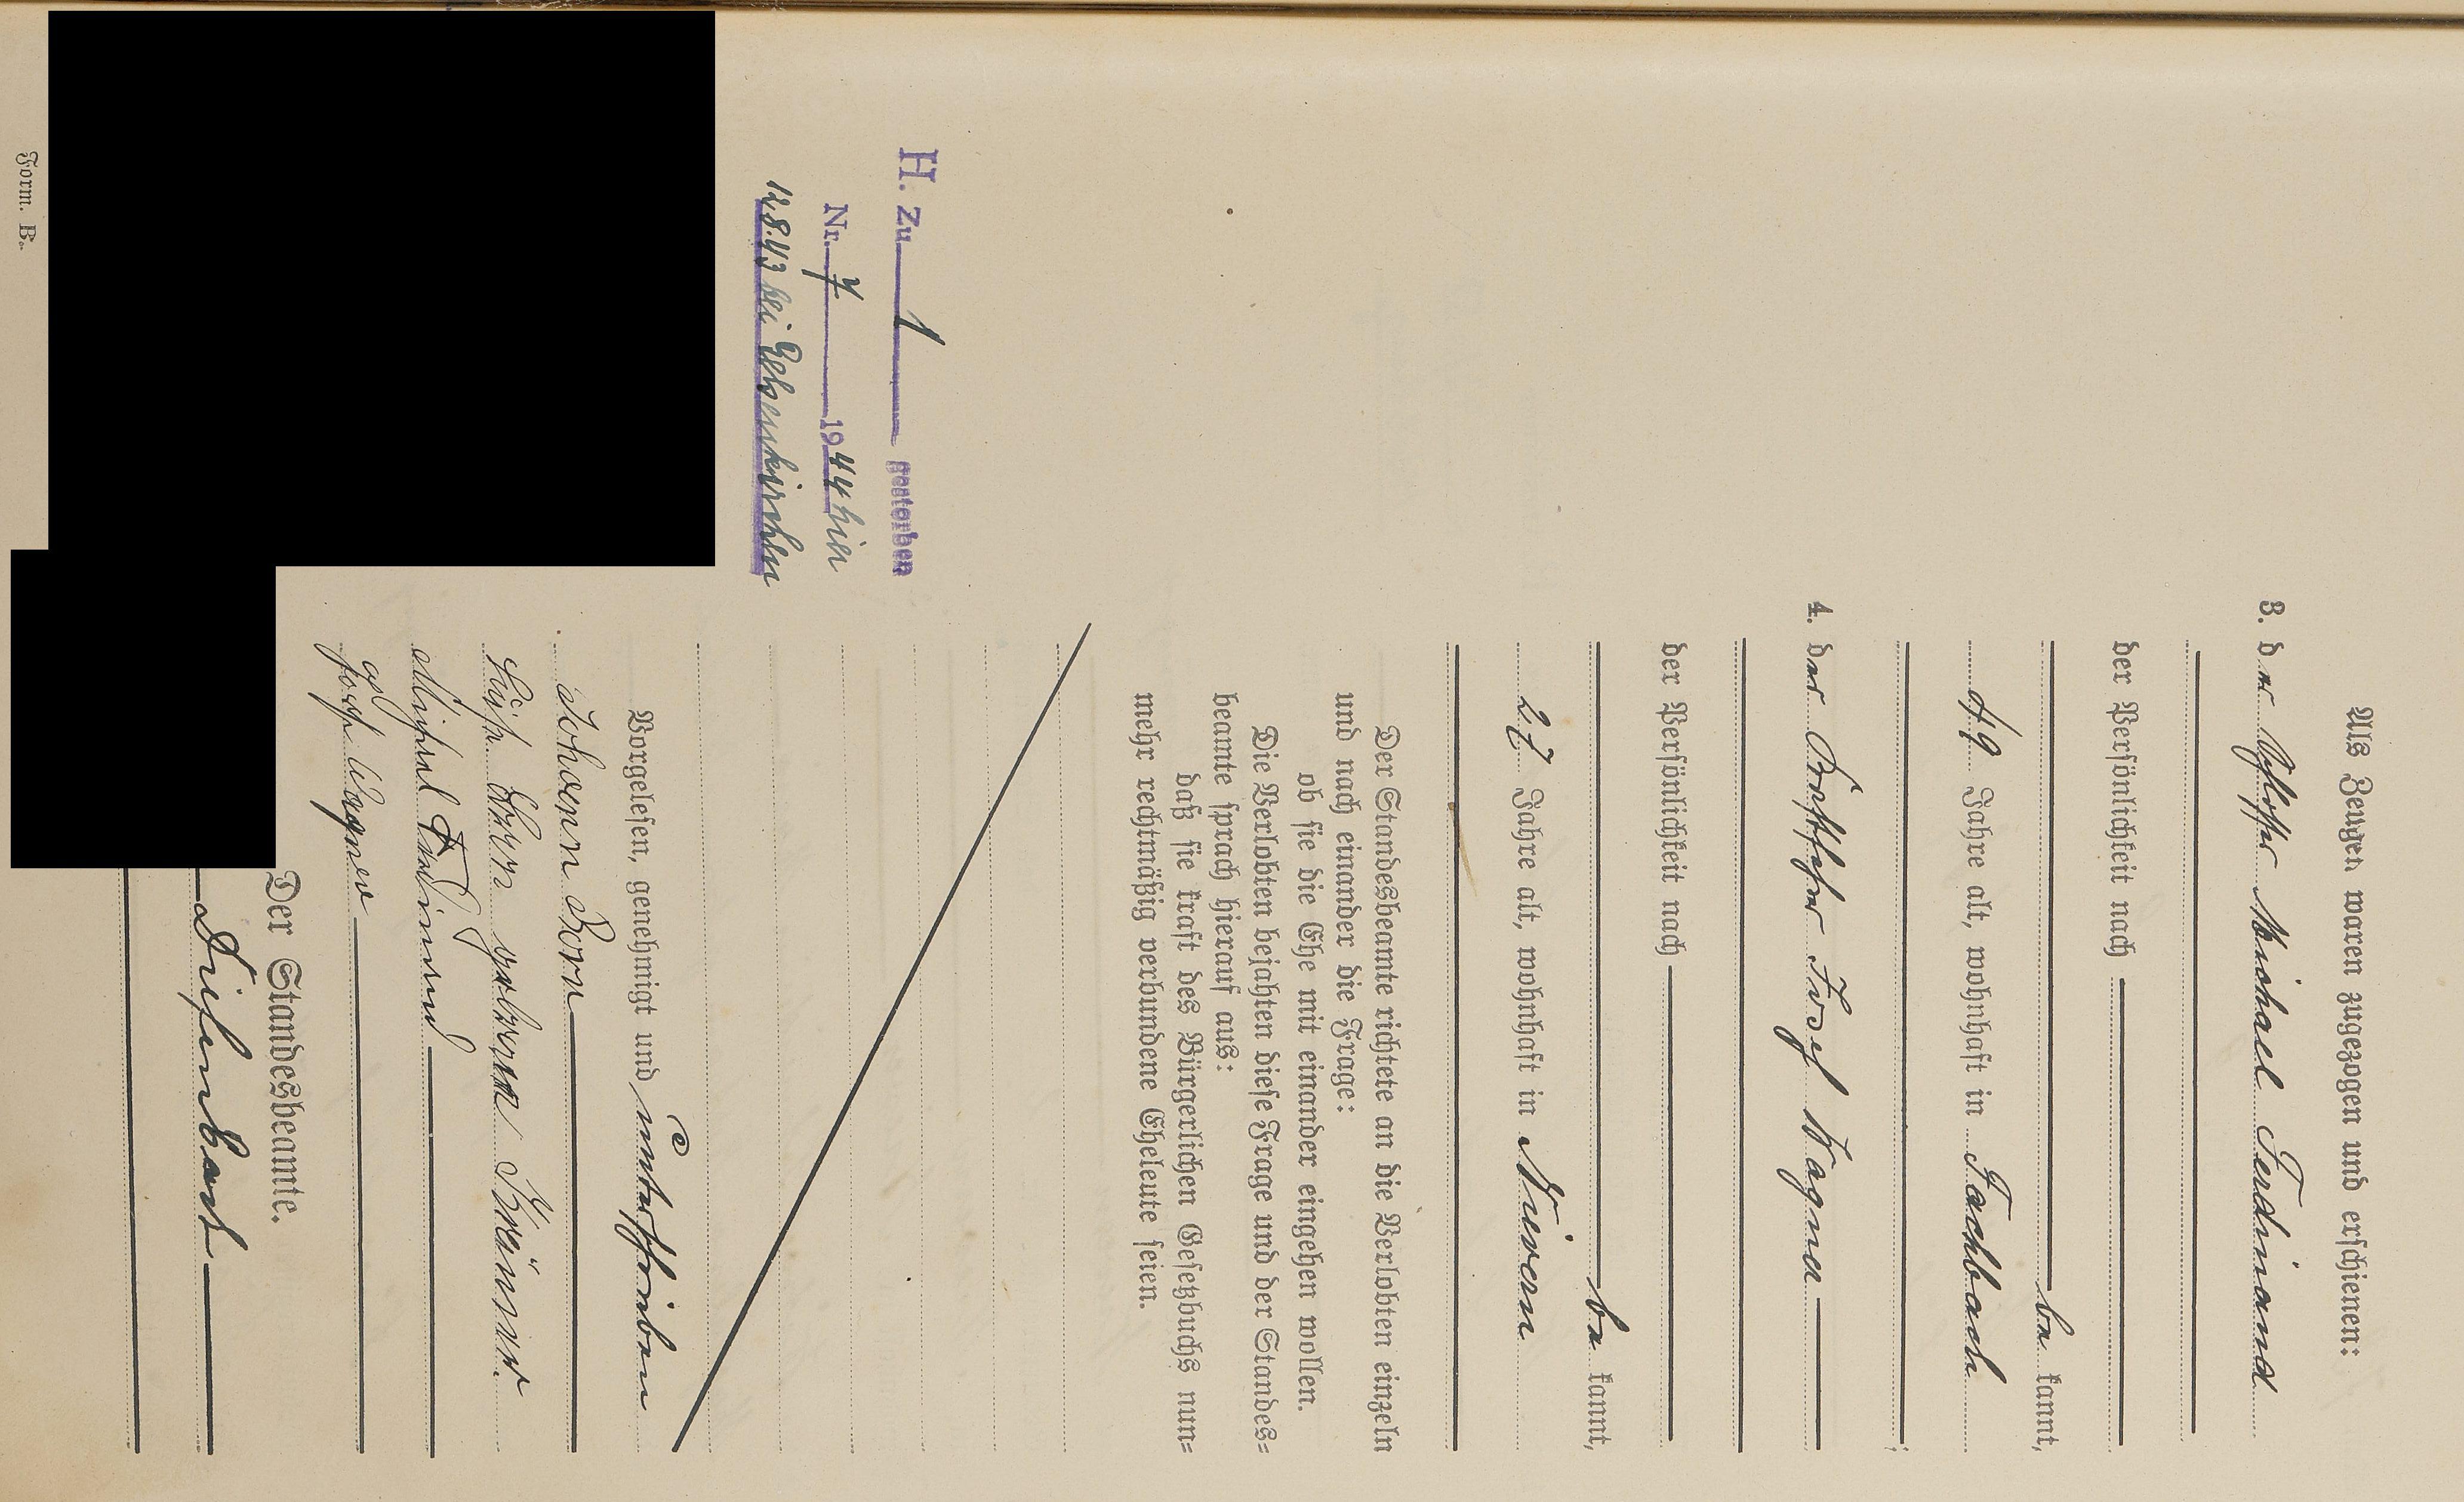 Als Zeugen waren zugezogen und erschienen:
3. der Schlosser Michael Ferdinand
der Persönlichkeit nach
be kannt,
49 Jahre alt, wohnhaft in Fachbach
;
4. der Josef Wagner
der Persönlichkeit nach
be kannt,
27 Jahre alt, wohnhaft in Nievern
Der Standesbeamte richtete an die Verlobten einzeln
und nach einander die Frage:
ob sie die Ehe mit einander eingehen wollen.
Die Verlobten bejahten diese Frage und der Standes=
beamte sprach hierauf aus:
daß sie kraft des Bürgerlichen Gesetzbuchs nun=
mehr rechtmäßig verbundene Eheleute seien.
H. Zu 1 gestorben
Nr. 7 1944 hier
12.8.43 bei Gelsenkirchen
Vorgelesen, genehmigt und unterschrieben
Johann Born
Luise Born geborene Krämer.
Michel Ferdinand
Josef Wagner
Der Standesbeamte.
Form. B.